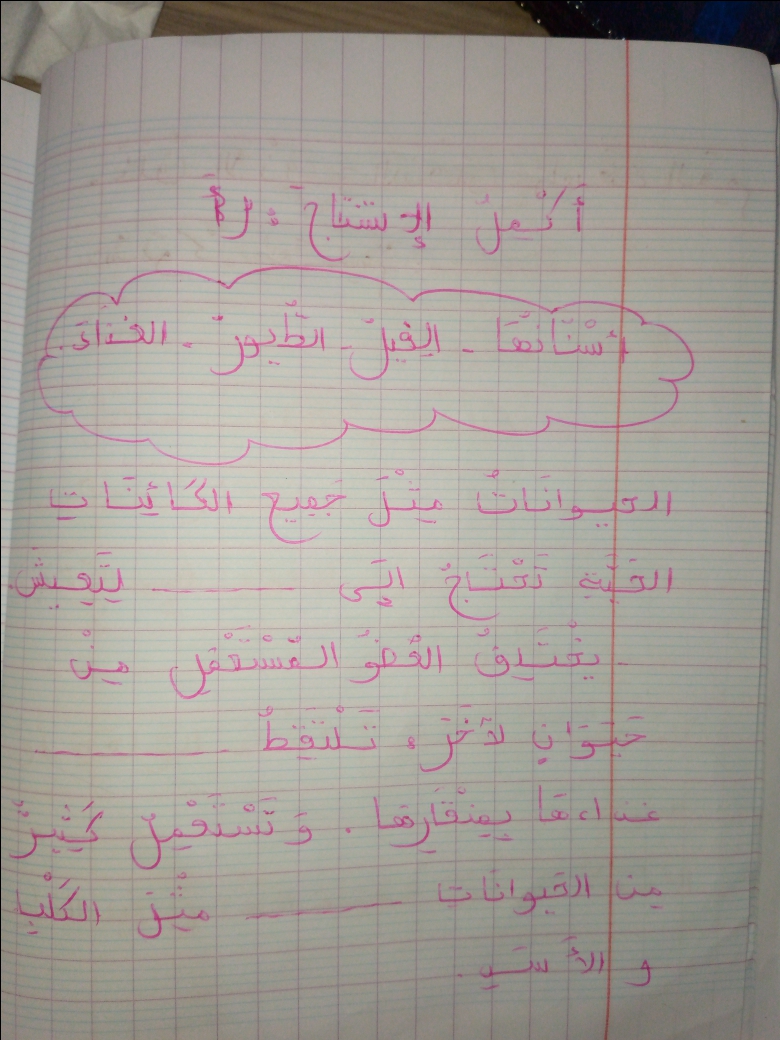 أَكْمِلُ الإِسْتنتاجَ :
أسْنَانَهَا - الفِيلُ - الطُّيورُ - الغِذَاءَ.
الحيوانَاتُ مِثْلَ جَمِيعِ الكَائِنَاتِ
الحَيَّةِ تَحْتَاجُ إلَى ـــــــــ لِتَعِيشَ.
يخْتَلِفُ العُضْوُ المُسْتَعْمَلِ مِنْ
حَيَوَانٍ لآخَرَ، تَلْتَقِطُ ـــــــــ
غذاءهَا بِمِنْقَارِهَا . وَ تَسْتَعْمِلُ كَثِيرٌ
مِن الحَيوانَاتِ ـــــــــ مِثْلَ الكَلْبِ
و الأَسَدِ.